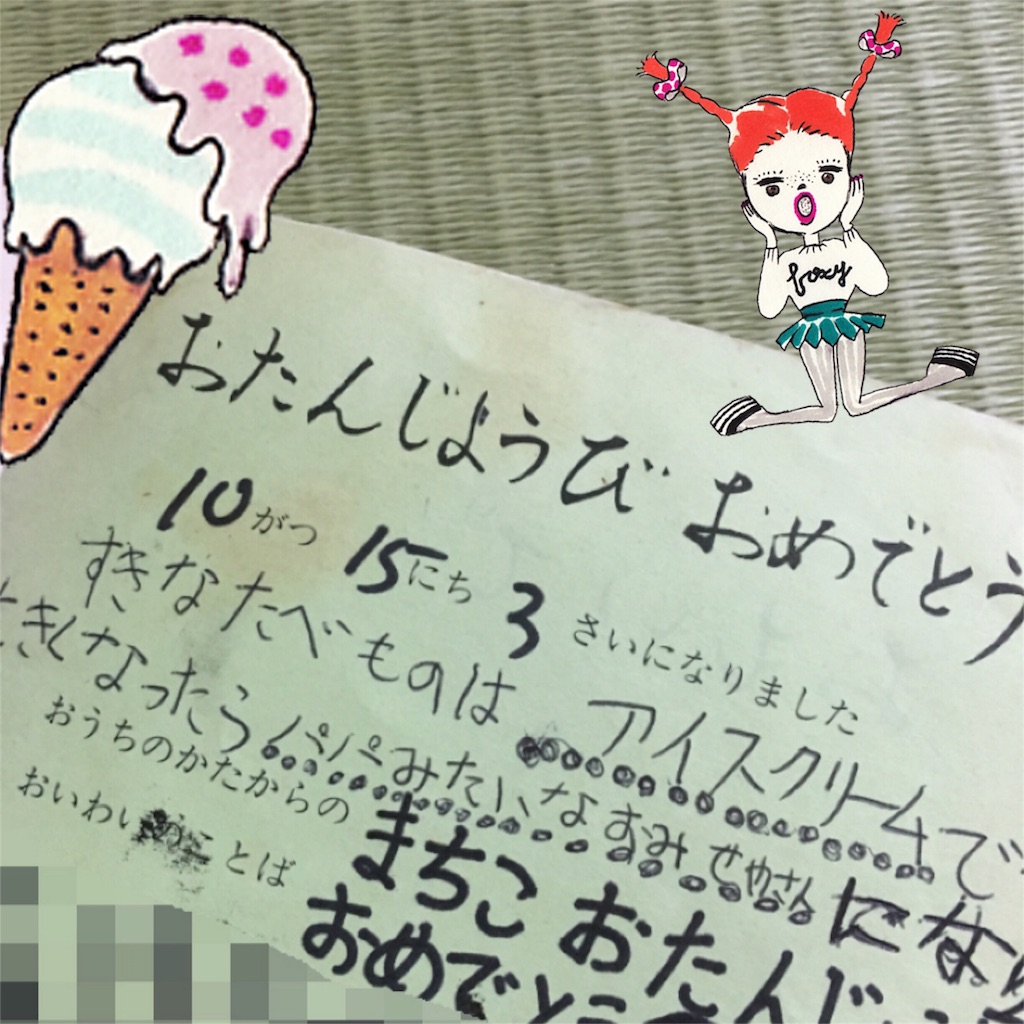 foxy
おたんじようび おめでとう
10がつ 15にち 3 さいになりました
すきなたべものは アイスクリームで
きくなったら パパみたいな すみせやさん にな
おうちのかたからの
おいわい とば
まちこ おたんじ
おめでと